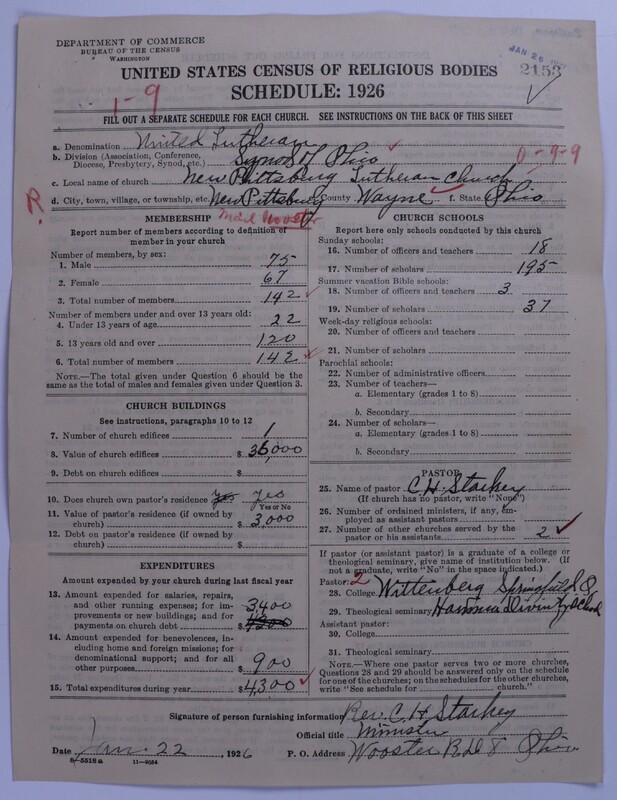 DEPARTMENT OF COMMERCE
BUREAU OF THE CENSUS
WASHINGTON
JAN 26
2153
UNITED STATES CENSUS OF RELIGIOUS BODIES
SCHEDULE: 1926
1-9
FILL OUT A SEPARATE SCHEDULE FOR EACH CHURCH. SEE INSTRUCTIONS ON THE BACK OF THIS SHEET
a. Denomination United Lutheran
b. Division (Association, Conference, Diocese, Presbytery, Synod, etc.) Synod of Ohio
0-9-9
c. Local name of church New Pittsburg Lutheran Church
R
d. City, town, village, or township, etc. New Pittsburg County Wayne f. State Ohio
Mail Wooster
MEMBERSHIP
Report number of members according to definition of
member in your church
Number of members, by sex:
1. Male 75
2. Female 67
3. Total number of members 142
Number of members under and over 13 years old:
4. Under 13 years of age 22
5. 13 years old and over 120
6. Total number of members 142
NOTE.—The total given under Question 6 should be
same as the total of males and females given under Question 3.
CHURCH BUILDINGS
See instructions, paragraphs 10 to 12
7. Number of church edifices 1
8. Value of church edifices $ 36,000
9. Debt on church edifices $
10. Does church own pastor's residence yes yes
Yes or No
11. Value of pastor's residence (if owned by
church) $ 3,000
12. Debt on pastor's residence (if owned by
church) $
EXPENDITURES
Amount expended by your church during last fiscal year
13. Amount expended for salaries, repairs,
and other running expenses; for im-
provements or new buildings; and for
payments on church debt $ 3400
14. Amount expended for benevolences, in-
cluding home and foreign missions; for
denominational support; and for all
other purposes $ 900
15. Total expenditures during year $ 4300
CHURCH SCHOOLS
Report here only schools conducted by this church
Sunday schools:
16. Number of officers and teachers 18
17. Number of scholars 195
Summer vacation Bible schools:
18. Number of officers and teachers 3
19. Number of scholars 37
Week-day religious schools:
20. Number of officers and teachers
21. Number of scholars
Parochial schools:
22. Number of administrative officers
23. Number of teachers—
a. Elementary (grades 1 to 8)
b. Secondary
24. Number of scholars—
a. Elementary (grades 1 to 8)
b. Secondary
PASTOR
25. Name of pastor C.H. Starkey
(If church has no pastor, write "None")
26. Number of ordained ministers, if any, em-
ployed as assistant pastors
27. Number of other churches served by the
pastor or his assistants 2
If pastor (or assistant pastor) is a graduate of a college or
theological seminary, give name of institution below. (If
not a graduate, write "No" in the space indicated.)
Pastor: 2
28. College Wittenberg Springfield O
29. Theological seminary Hamma Divinity School
Assistant pastor:
30. College
31. Theological seminary
NOTE.—Where one pastor serves two or more churches,
Questions 28 and 29 should be answered only on the schedule
for one of the churches; on the schedules for the other churches,
write "See schedule for church."
Signature of person furnishing information Rev. C.H. Starkey
Official title Minister
Date Jan. 22, 1926 P. O. Address Wooster R.D. 8 Ohio
8-5518a 11-9684